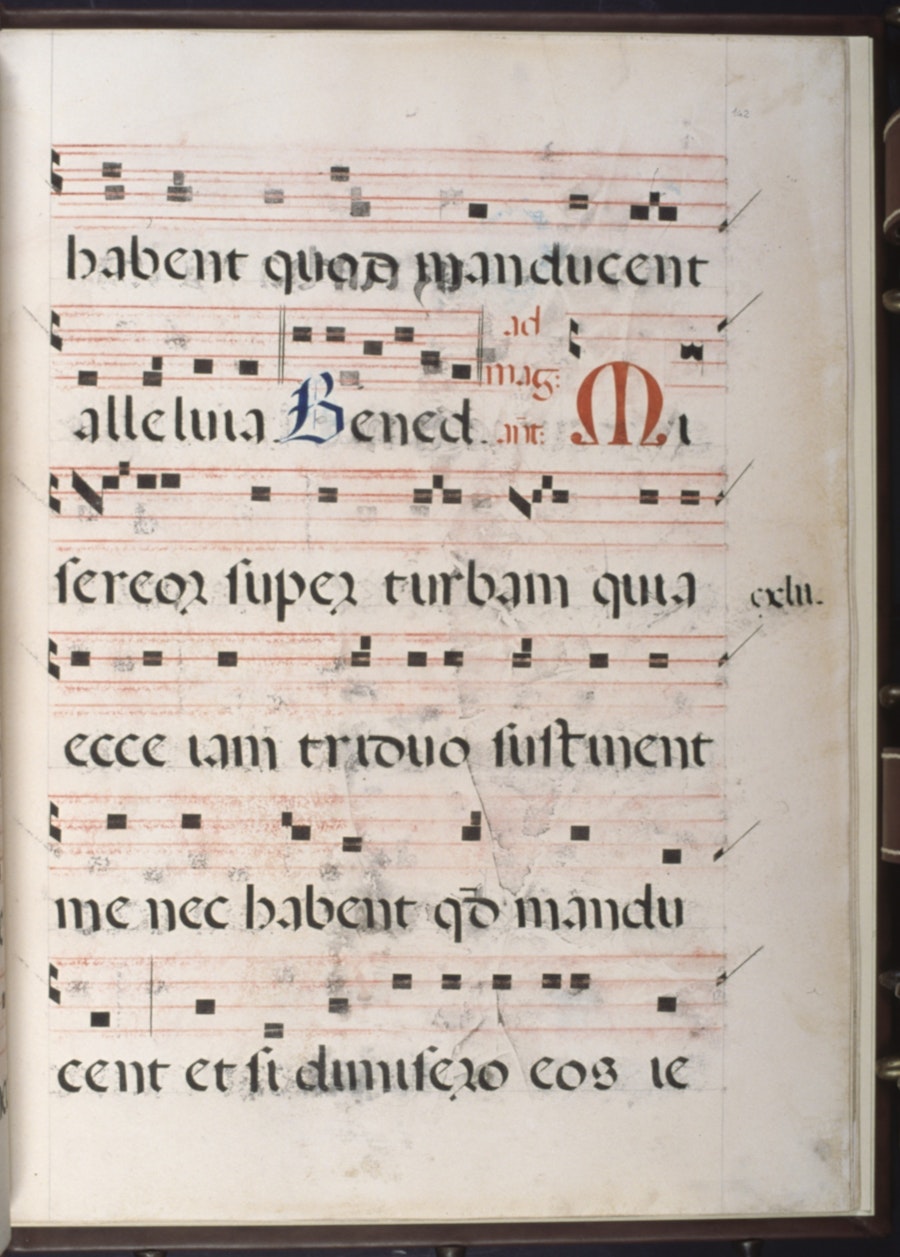 142
habent quod manducent
ad
mag:
alleluia. Bened. ant: Mi
sereor super turbam quia
cxlii.
ecce iam triduo sustinent
me nec habent qd̄ mandu
cent et si dimisero eos ie